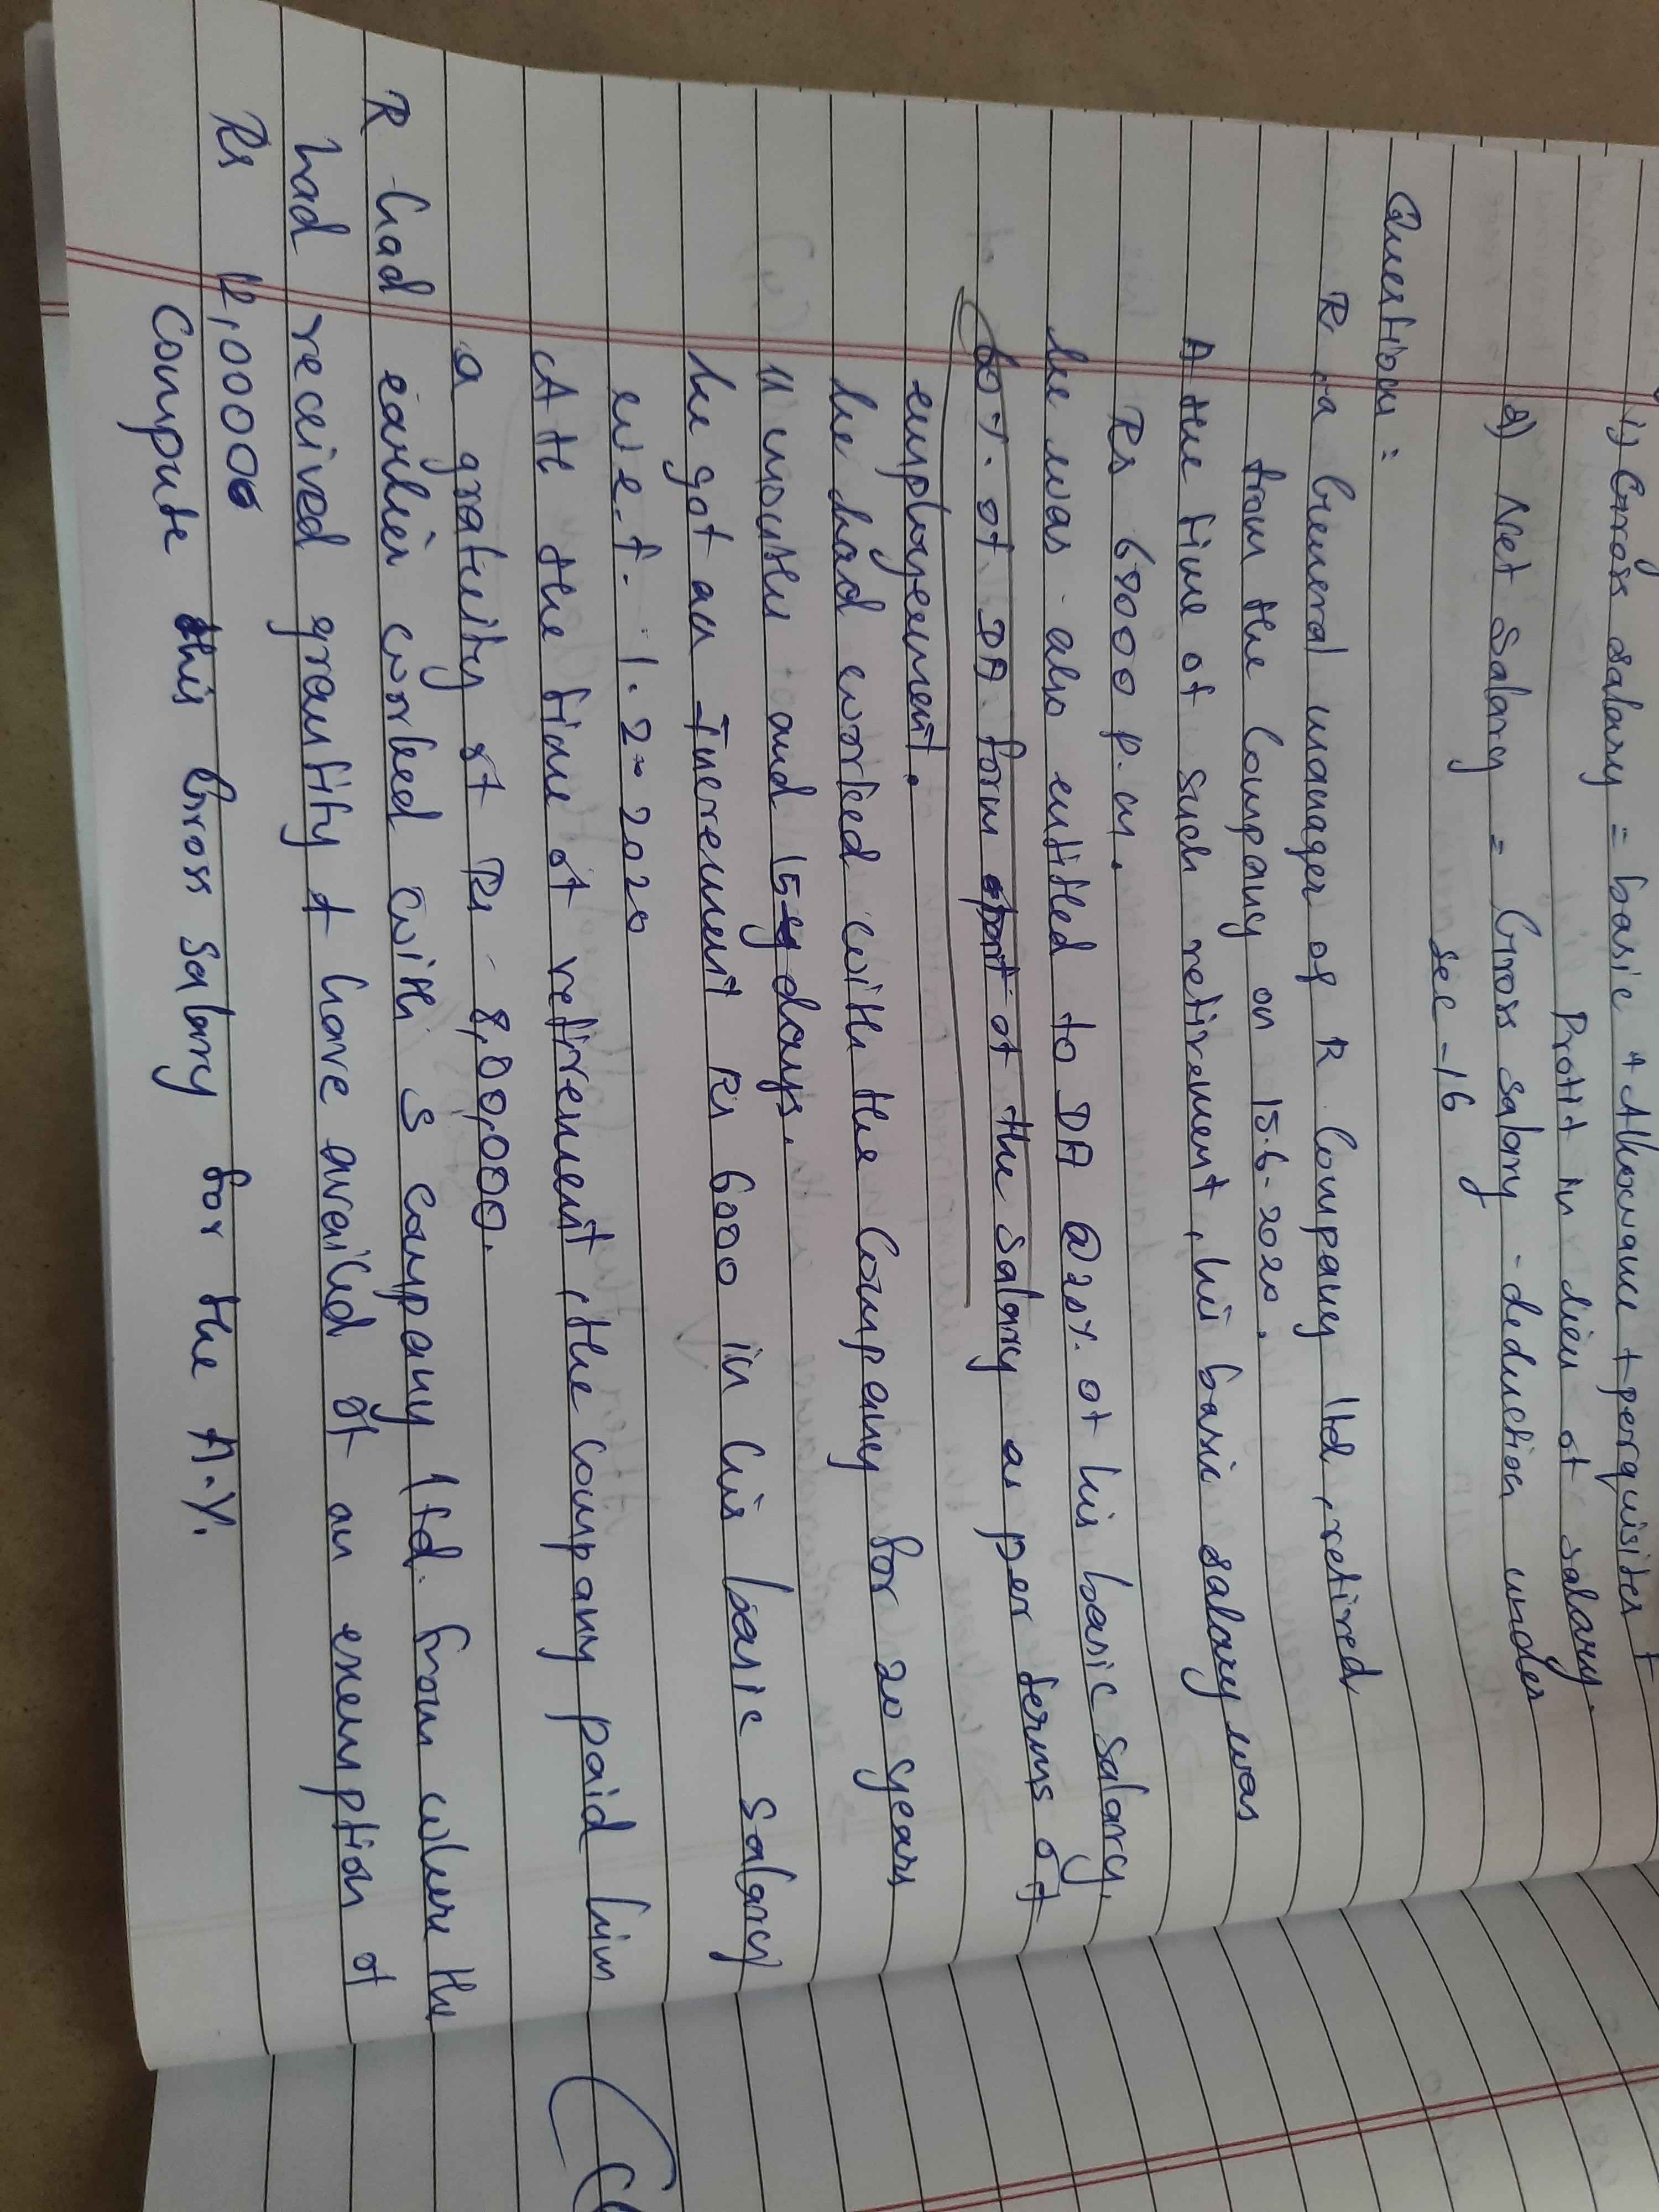 1) Gross salary = basic + Allowance + perquisites +
Profit in lieu of salary.
2) Net Salary = Gross salary - deduction under
sec - 16
Question :
R, a General manager of R Company ltd, retired
from the Company on 15.6.2020.
A the time of such retirement, his basic salary was
Rs 68000 p.m.
he was also entitled to DA @ 25%. of his basic salary.
60%. of DA form part of the salary as per terms of
employeement.
he had worked with the Company for 20 years
11 months and 15 days.
he got an Increment Rs 6000 in his basic salary
w.e.f. 1.2.2020
At the time of retirement, the company paid him
a gratuity of Rs 8,00,000.
R had earlier worked with S company ltd. from where he
had received gratity & have availed of an exemption of
Rs
Compute this Gross Salary for the A.Y.